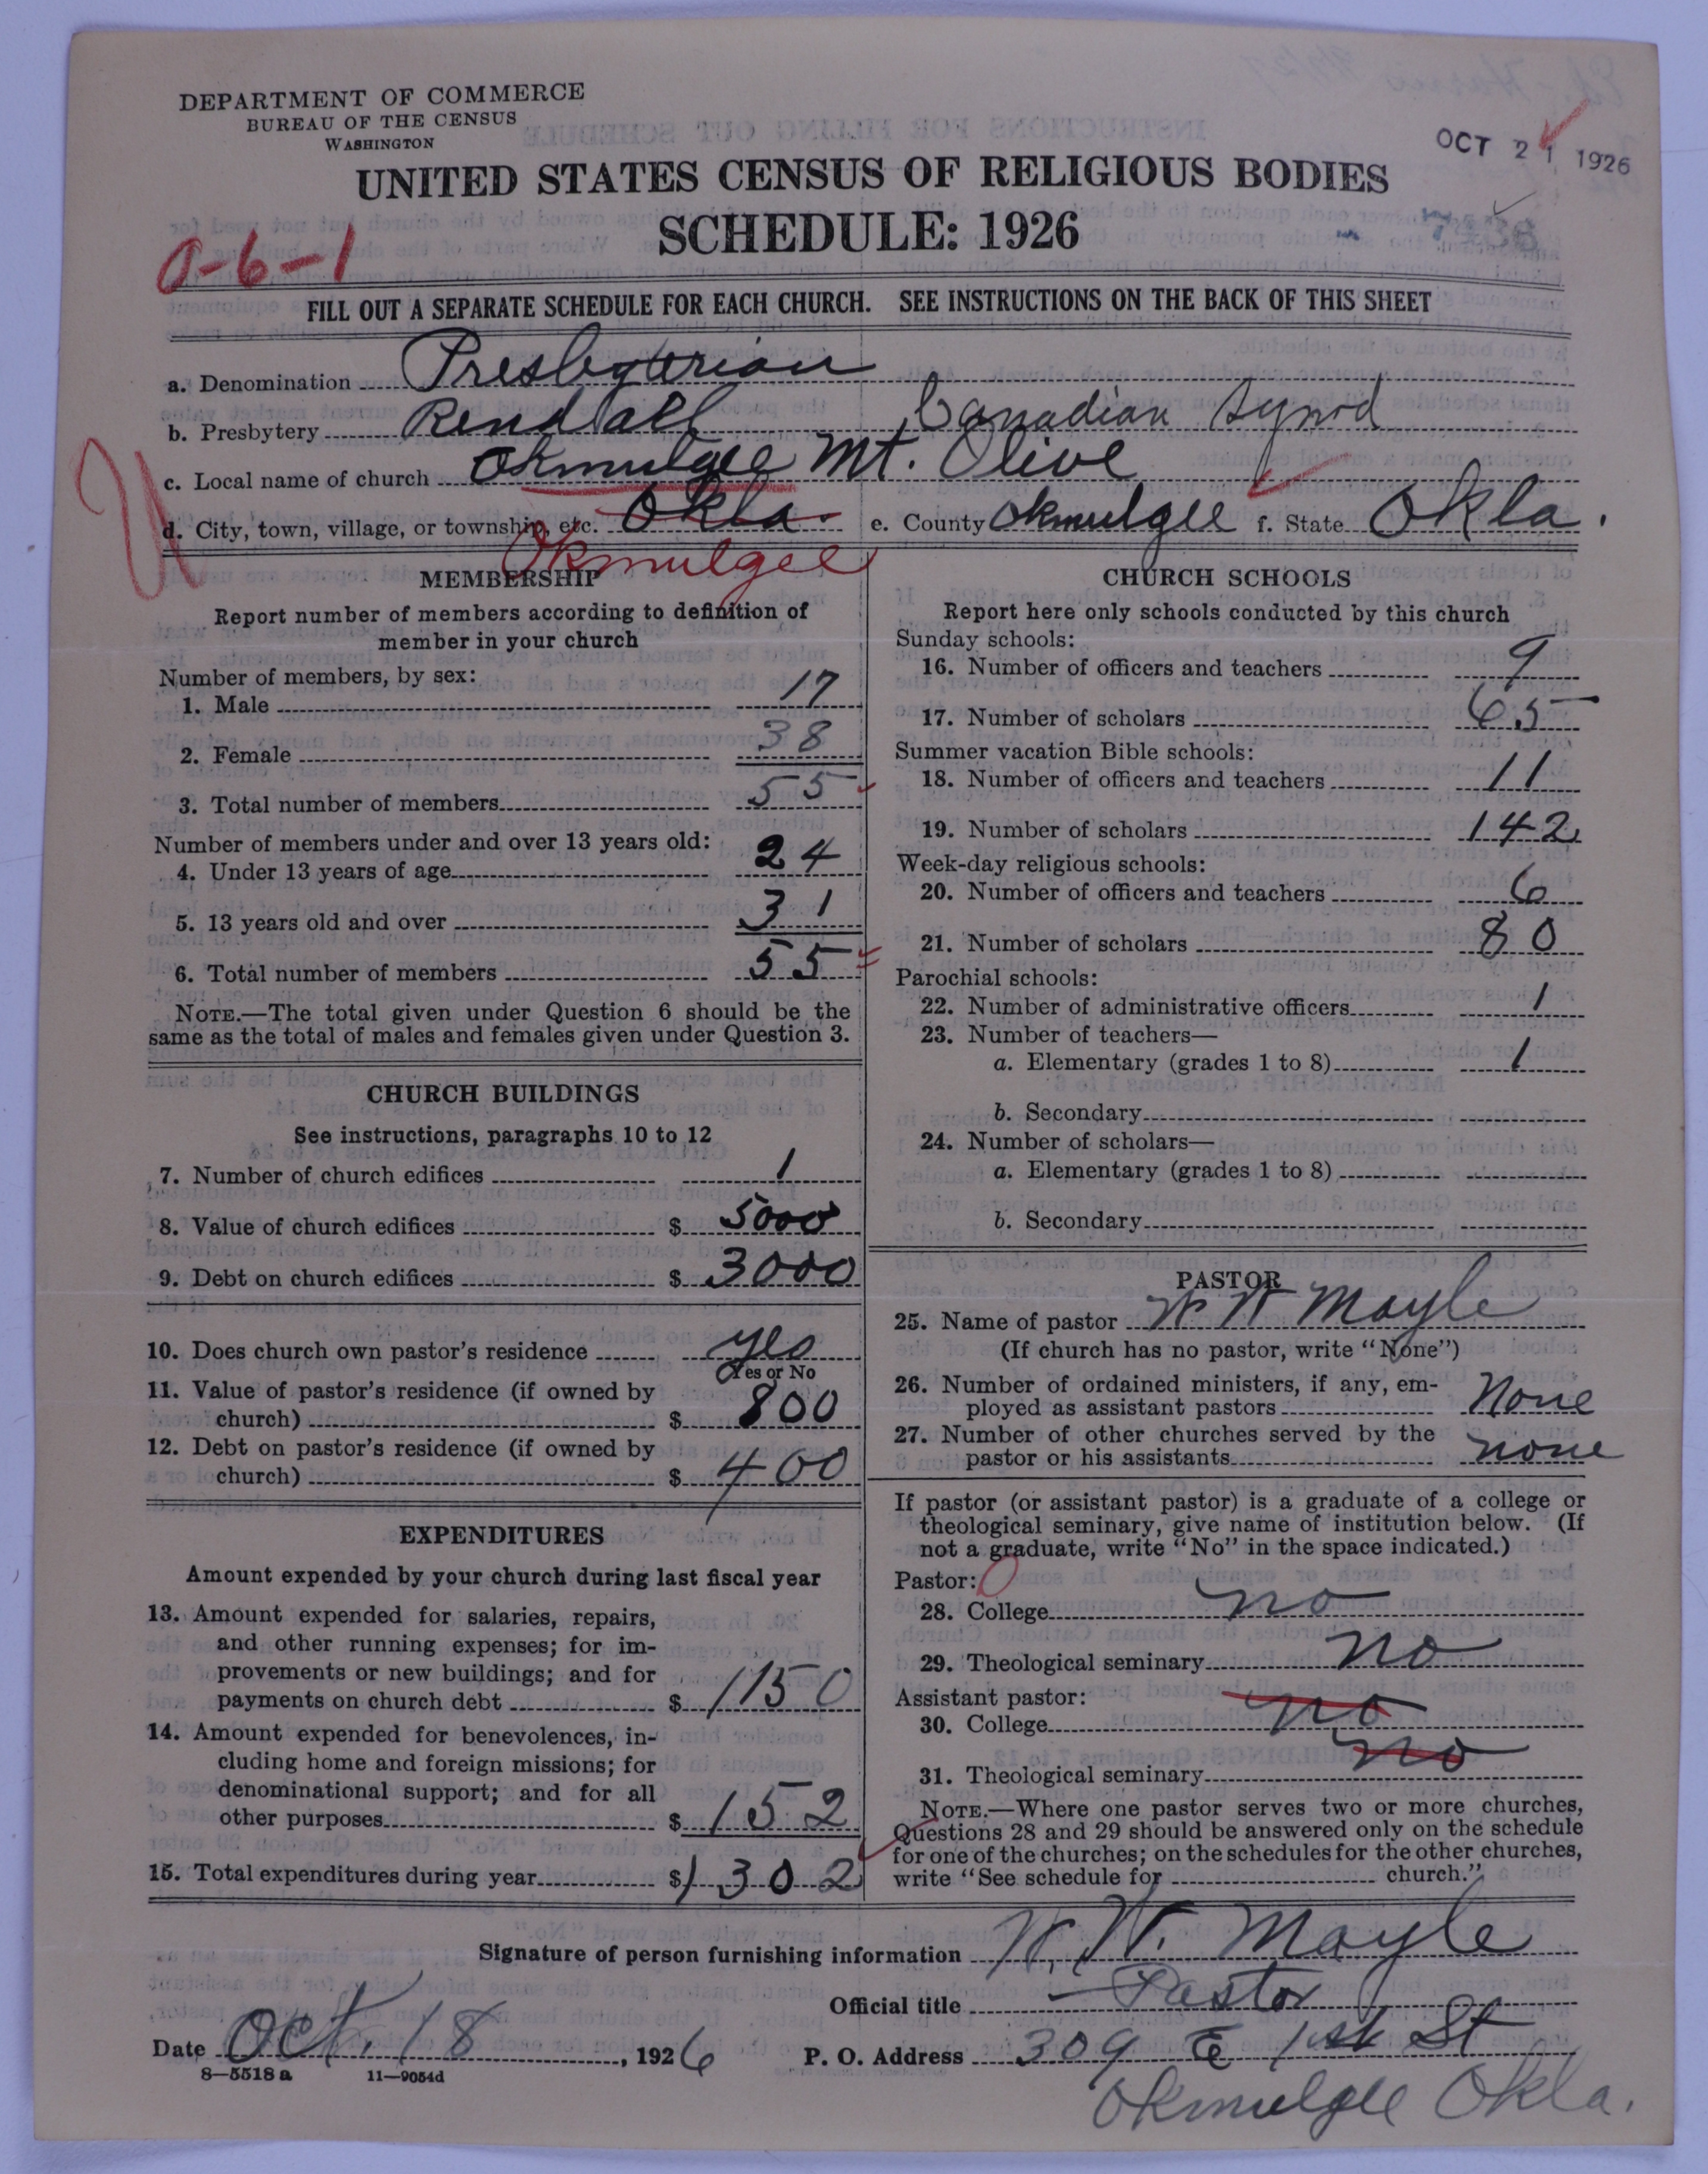 DEPARTMENT OF COMMERCE
BUREAU OF THE CENSUS
WASHINGTON
OCT 21 1926
UNITED STATES CENSUS OF RELIGIOUS BODIES
SCHEDULE: 1926
0-6-1
FILL OUT A SEPARATE SCHEDULE FOR EACH CHURCH. SEE INSTRUCTIONS ON THE BACK OF THIS SHEET
a. Denomination Presbyterian
b. Presbytery Rendall Canadian Synod
c. Local name of church Okmulgee Mt. Olive
d. City, town, village, or township, etc. Okla. e. County Okmulgee f. State Okla.
Okmulgee
MEMBERSHIP
Report number of members according to definition of
member in your church
Number of members, by sex:
1. Male 17
2. Female 38
3. Total number of members 55
Number of members under and over 13 years old:
4. Under 13 years of age 24
5. 13 years old and over 31
6. Total number of members 55
NOTE.—The total given under Question 6 should be the
same as the total of males and females given under Question 3.
CHURCH BUILDINGS
See instructions, paragraphs 10 to 12
7. Number of church edifices 1
8. Value of church edifices $ 5000
9. Debt on church edifices $ 3000
10. Does church own pastor's residence yes
Yes or No
11. Value of pastor's residence (if owned by
church) $ 800
12. Debt on pastor's residence (if owned by
church) $ 400
EXPENDITURES
Amount expended by your church during last fiscal year
13. Amount expended for salaries, repairs,
and other running expenses; for im-
provements or new buildings; and for
payments on church debt $ 1150
14. Amount expended for benevolences, in-
cluding home and foreign missions; for
denominational support; and for all
other purposes $ 152
15. Total expenditures during year $ 1302
CHURCH SCHOOLS
Report here only schools conducted by this church
Sunday schools:
16. Number of officers and teachers 9
17. Number of scholars 65
Summer vacation Bible schools:
18. Number of officers and teachers 11
19. Number of scholars 142
Week-day religious schools:
20. Number of officers and teachers 6
21. Number of scholars 80
Parochial schools:
22. Number of administrative officers 1
23. Number of teachers—
a. Elementary (grades 1 to 8) 1
b. Secondary
24. Number of scholars—
a. Elementary (grades 1 to 8)
b. Secondary
PASTOR
25. Name of pastor W W Mayle
(If church has no pastor, write "None")
26. Number of ordained ministers, if any, em-
ployed as assistant pastors None
27. Number of other churches served by the
pastor or his assistants none
If pastor (or assistant pastor) is a graduate of a college or
theological seminary, give name of institution below. (If
not a graduate, write "No" in the space indicated.)
Pastor: 0
28. College no
29. Theological seminary no
Assistant pastor:
30. College no
31. Theological seminary no
NOTE.—Where one pastor serves two or more churches,
Questions 28 and 29 should be answered only on the schedule
for one of the churches; on the schedules for the other churches,
write "See schedule for church."
Signature of person furnishing information W. W. Mayle
Official title Pastor
Date Oct. 18, 1926 P. O. Address 309 E 1st St
8—5518a 11—9054d
Okmulgee Okla.